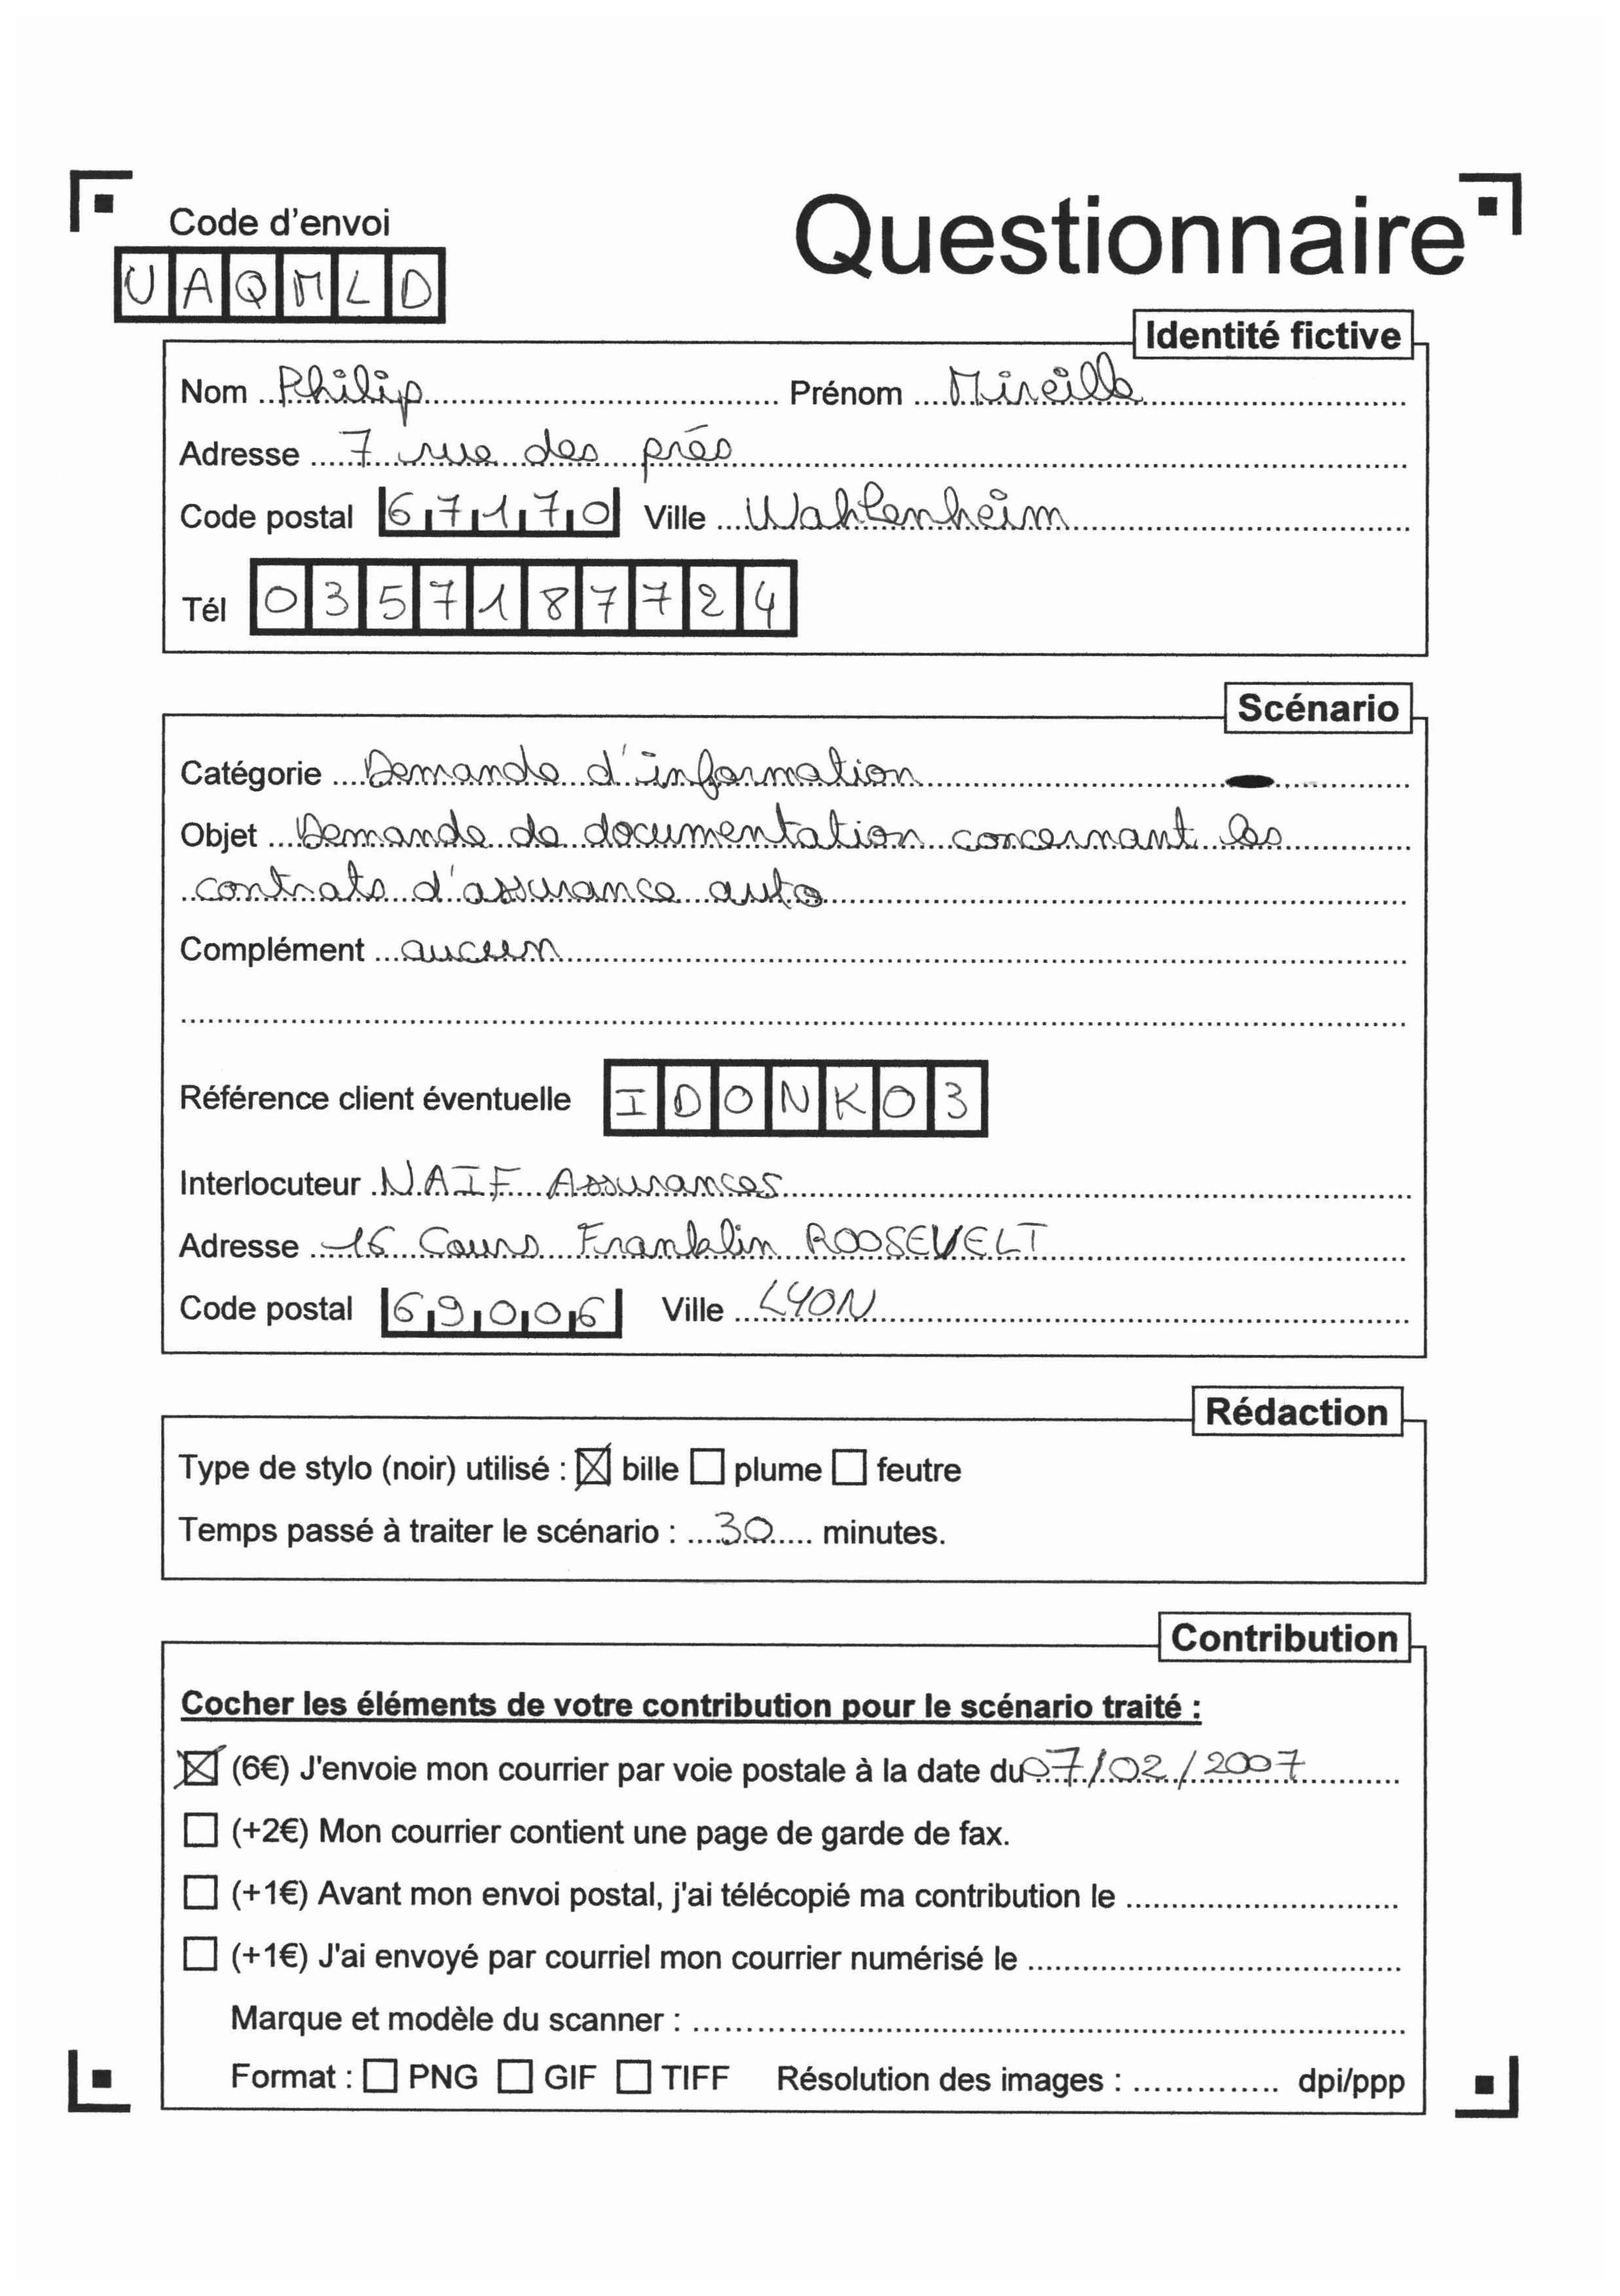 Code d'envoi
Questionnaire
UAQMLD
Identité fictive
Nom Philip Prénom Mireille
Adresse 7 rue des prés
Code postal 67170 Ville Wahlenheim
Tél 0357187724
Scénario
Catégorie Demande d'information
Objet Demande de documentation concernant les
contrats d'assurance auto
Complément aucun
Référence client éventuelle IDONKO3
Interlocuteur NAIF Assurances
Adresse 16 Cours Franklin ROOSEVELT
Code postal 69006 Ville LYON
Rédaction
Type de stylo (noir) utilisé : bille plume feutre
Temps passé à traiter le scénario : 30 minutes.
Contribution
Cocher les éléments de votre contribution pour le scénario traité :
(6€) J'envoie mon courrier par voie postale à la date du 07/02/2007
(+2€) Mon courrier contient une page de garde de fax.
(+1€) Avant mon envoi postal, j'ai télécopié ma contribution le
(+1€) J'ai envoyé par courriel mon courrier numérisé le
Marque et modèle du scanner :
Format : PNG GIF TIFF Résolution des images : dpi/ppp